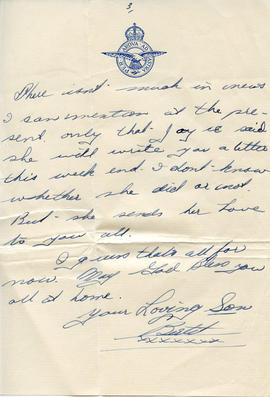 3.
PER ARDUA AD ASTRA
There isn't much in news
I can mention at the pre-
sent only that Joy said
she will write you a letter
this week end. I don't know
whether she did or not.
But she sends her love
to you all.
I guess that's all for
now. May God Bless you
all at home.
Your Loving Son
xxxxxxx